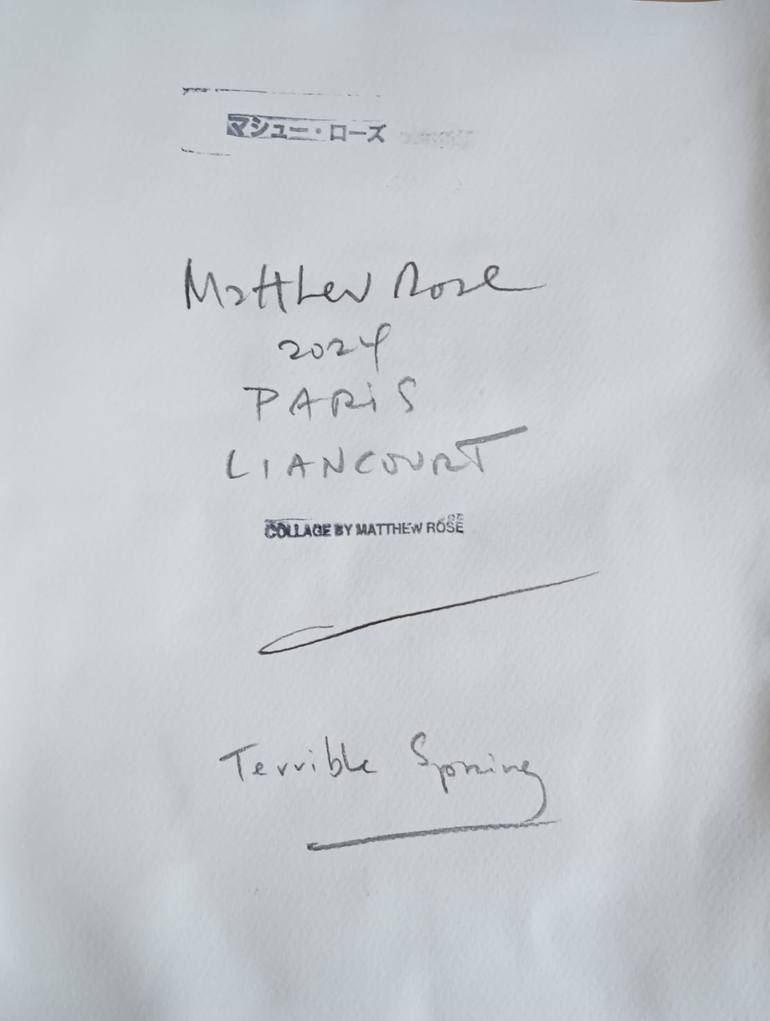 マシュー・ローズ
Matthew Rose
2024
PARIS
LIANCOURT
COLLAGE BY MATTHEW ROSE
Terrible Spring